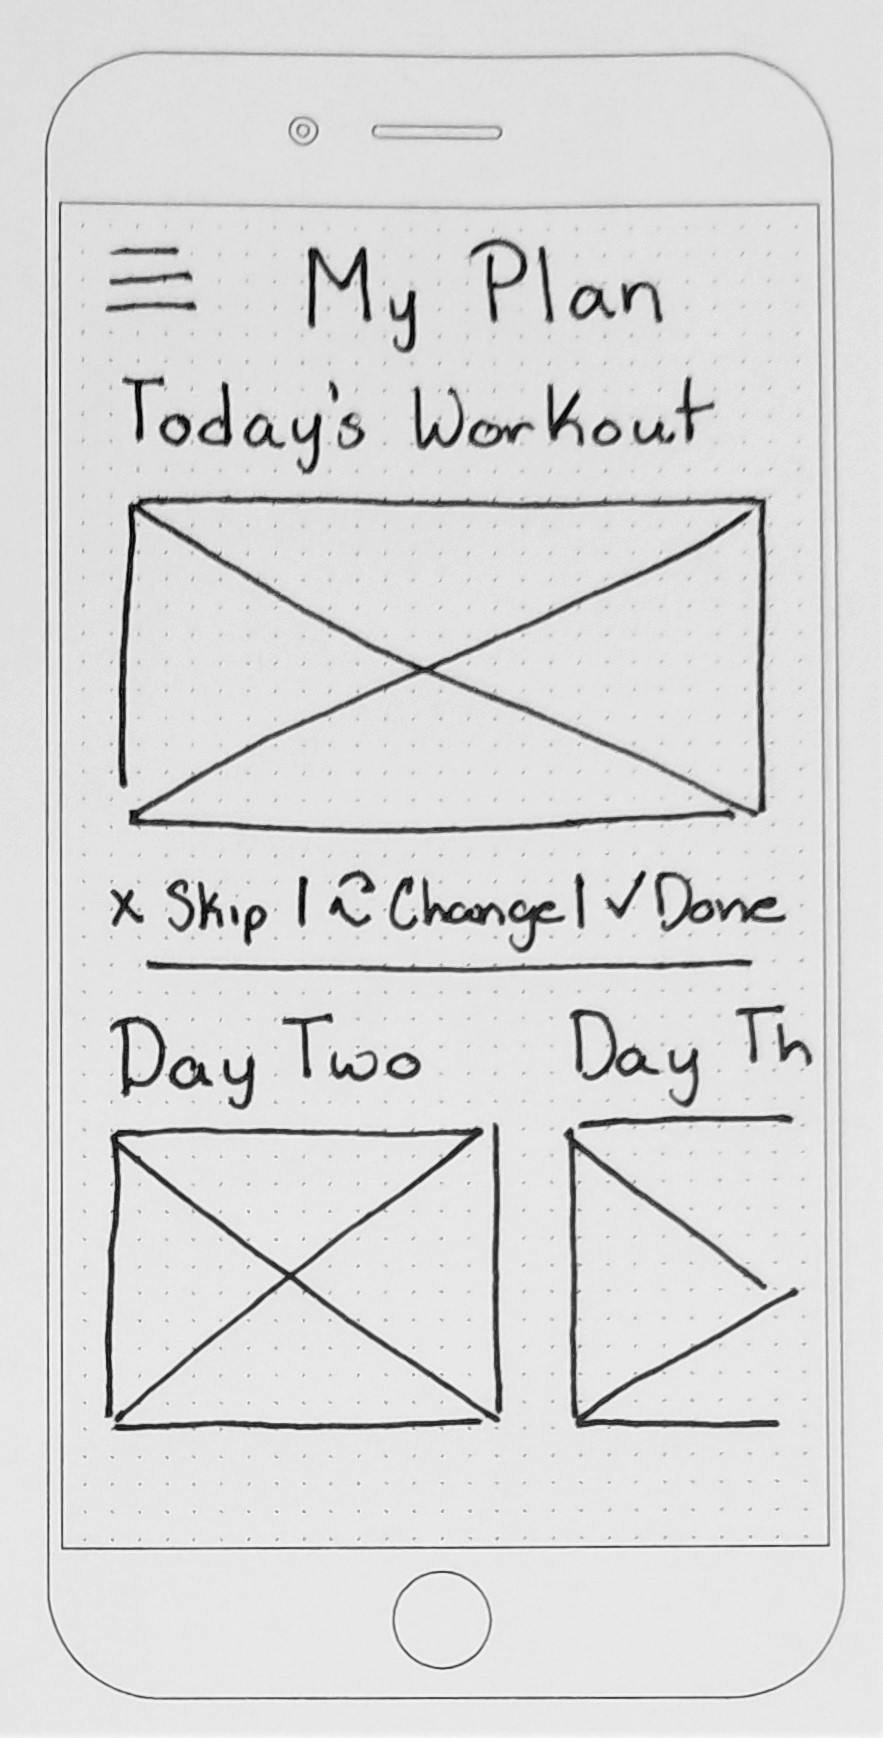 My Plan
Today's Workout
x Skip | ⟳ Change | ✓ Done
Day Two
Day Th